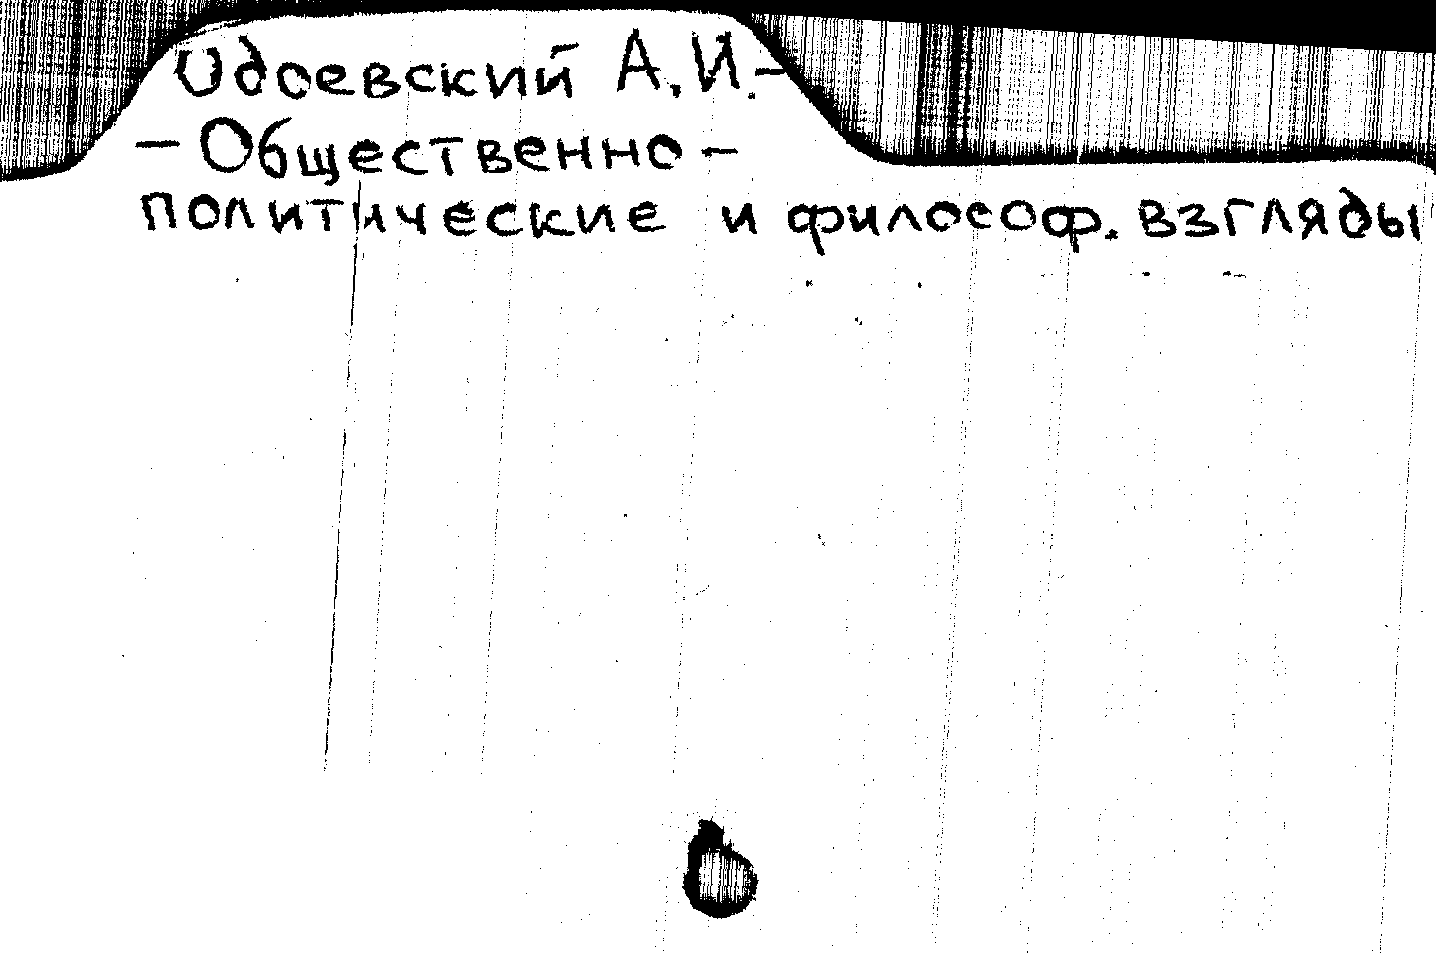 Одоевский А.И.-
- Общественно-
политические и философ. взгляды